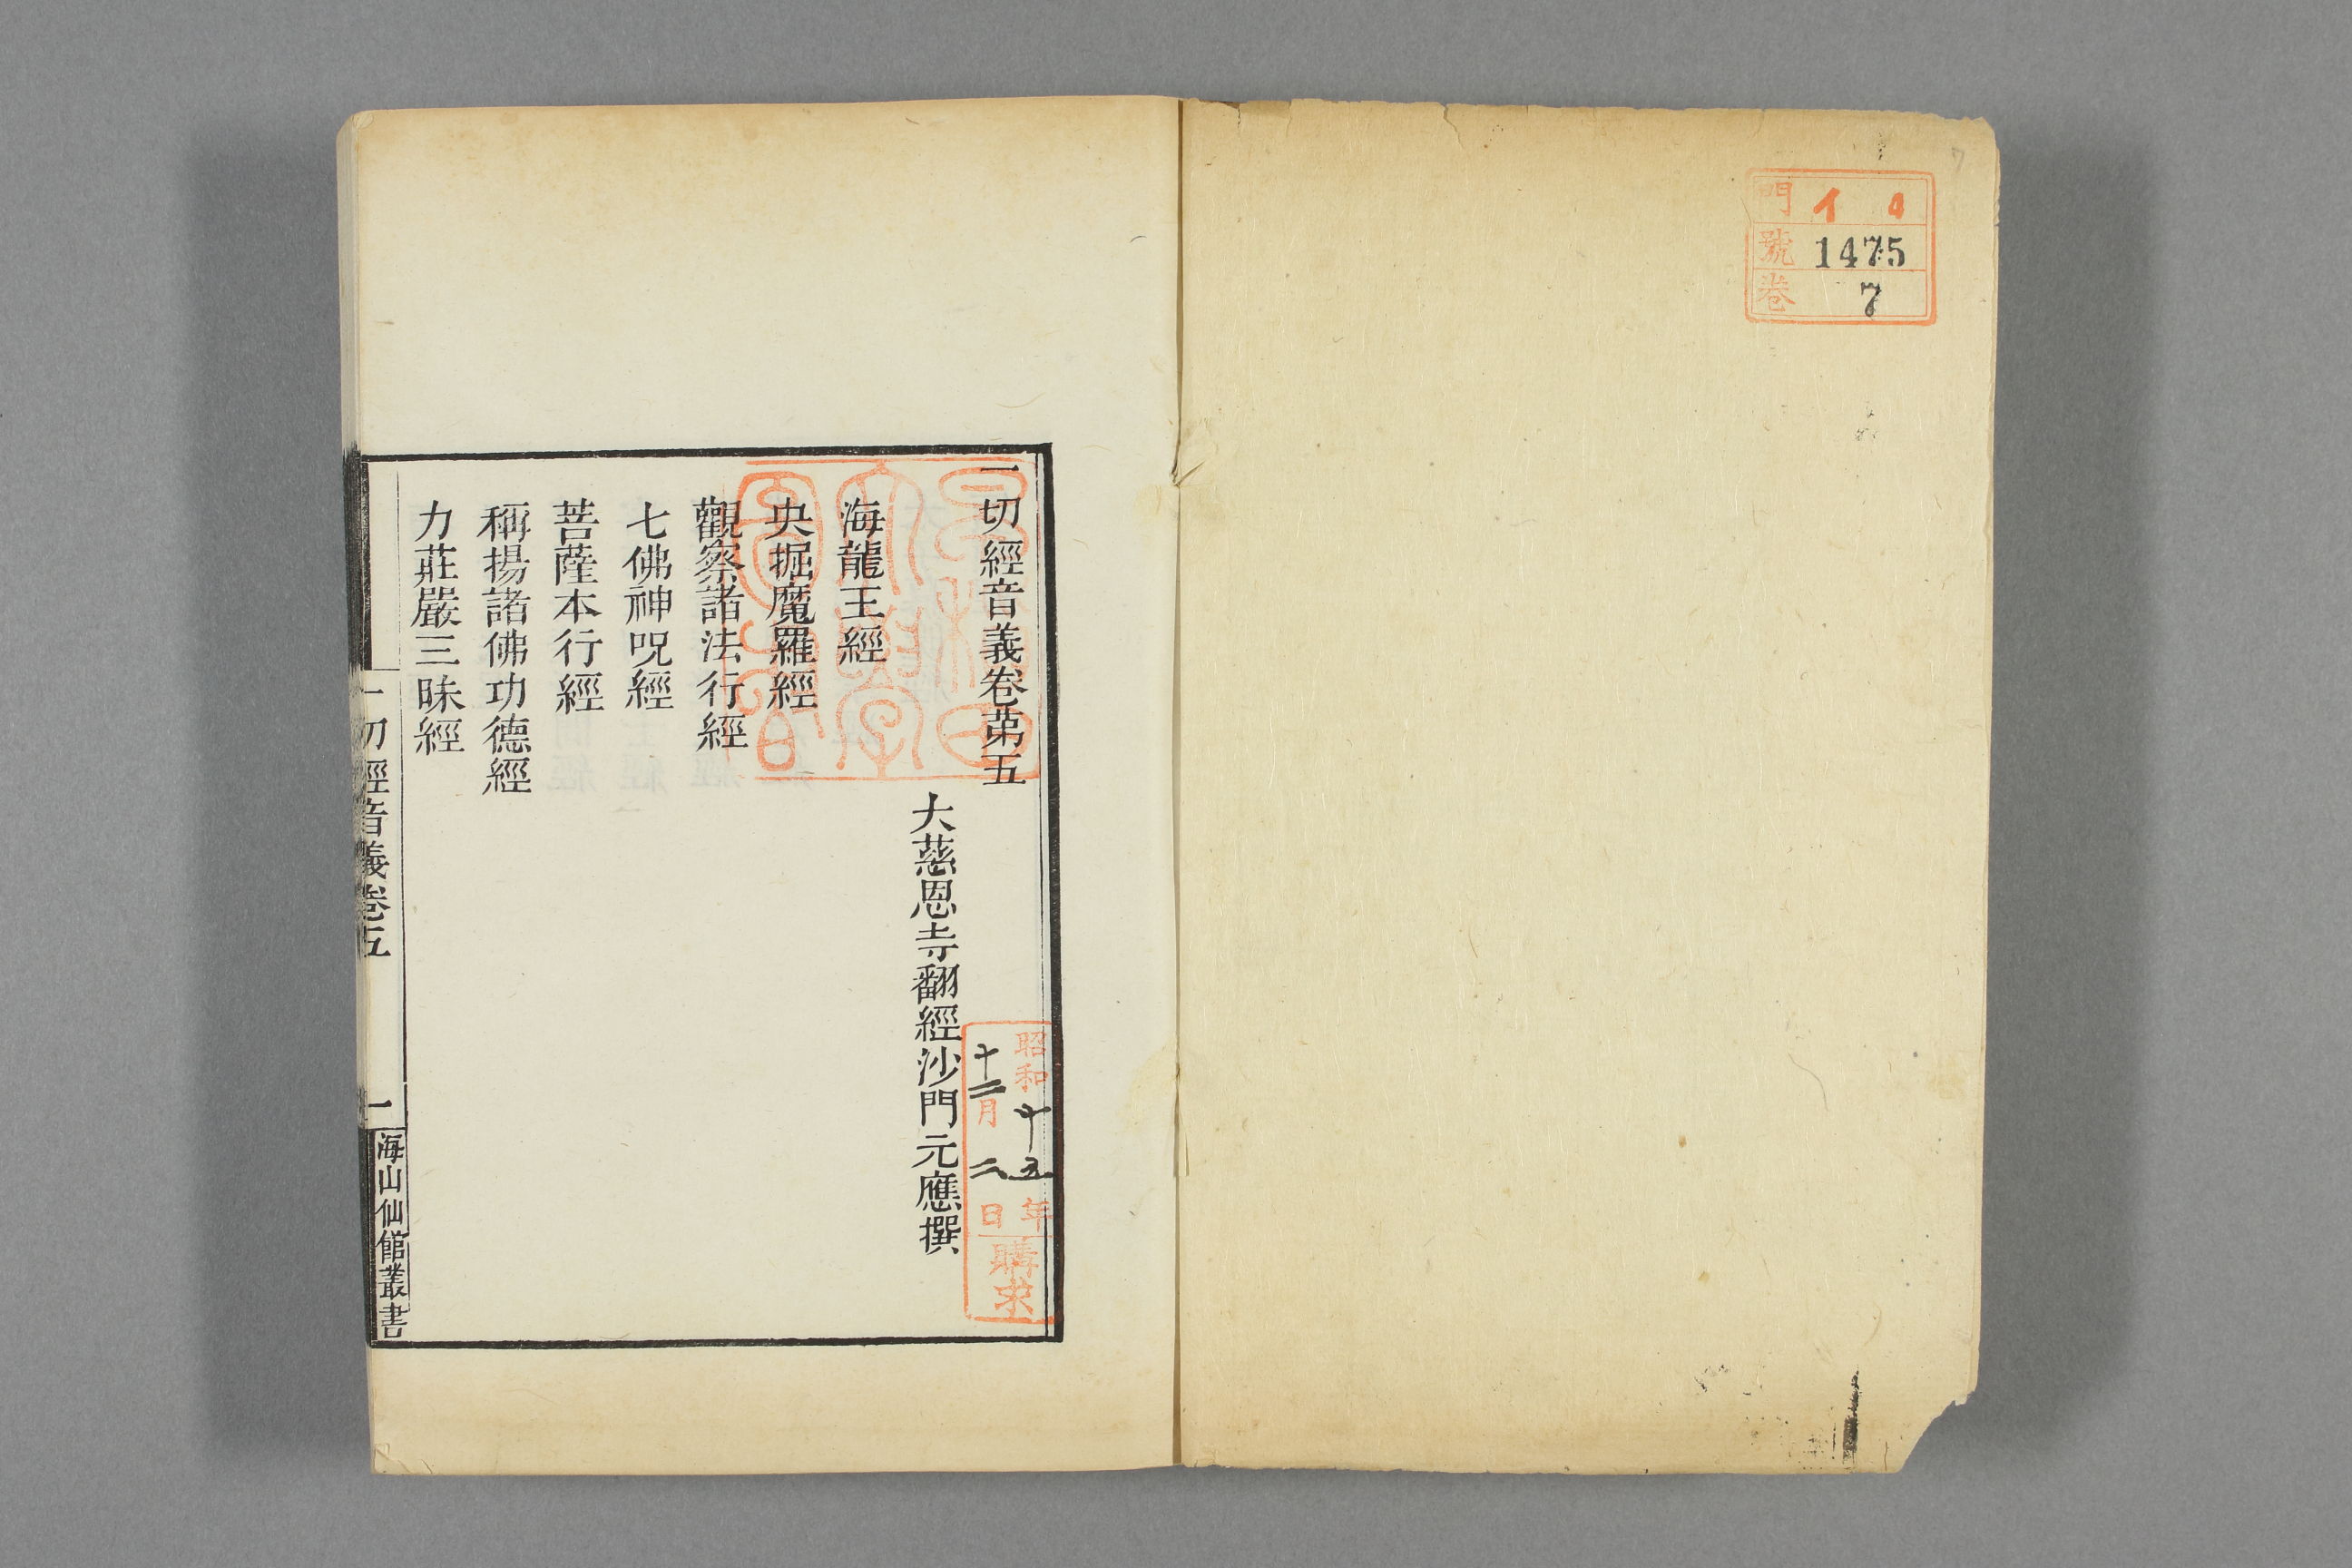 門 イ 4
號 1475
卷 7
7
一切經音義卷苐五
大慈恩寺翻經沙門元應撰
海龍王經
央掘魔羅經
觀察諸法行經
七佛神呪經
菩薩本行經
稱揚諸佛功德經
力莊嚴三昧經
一切經音義卷五
一
海山仙館叢書
昭和十五年
十二月二日
購求
早稻田
大學